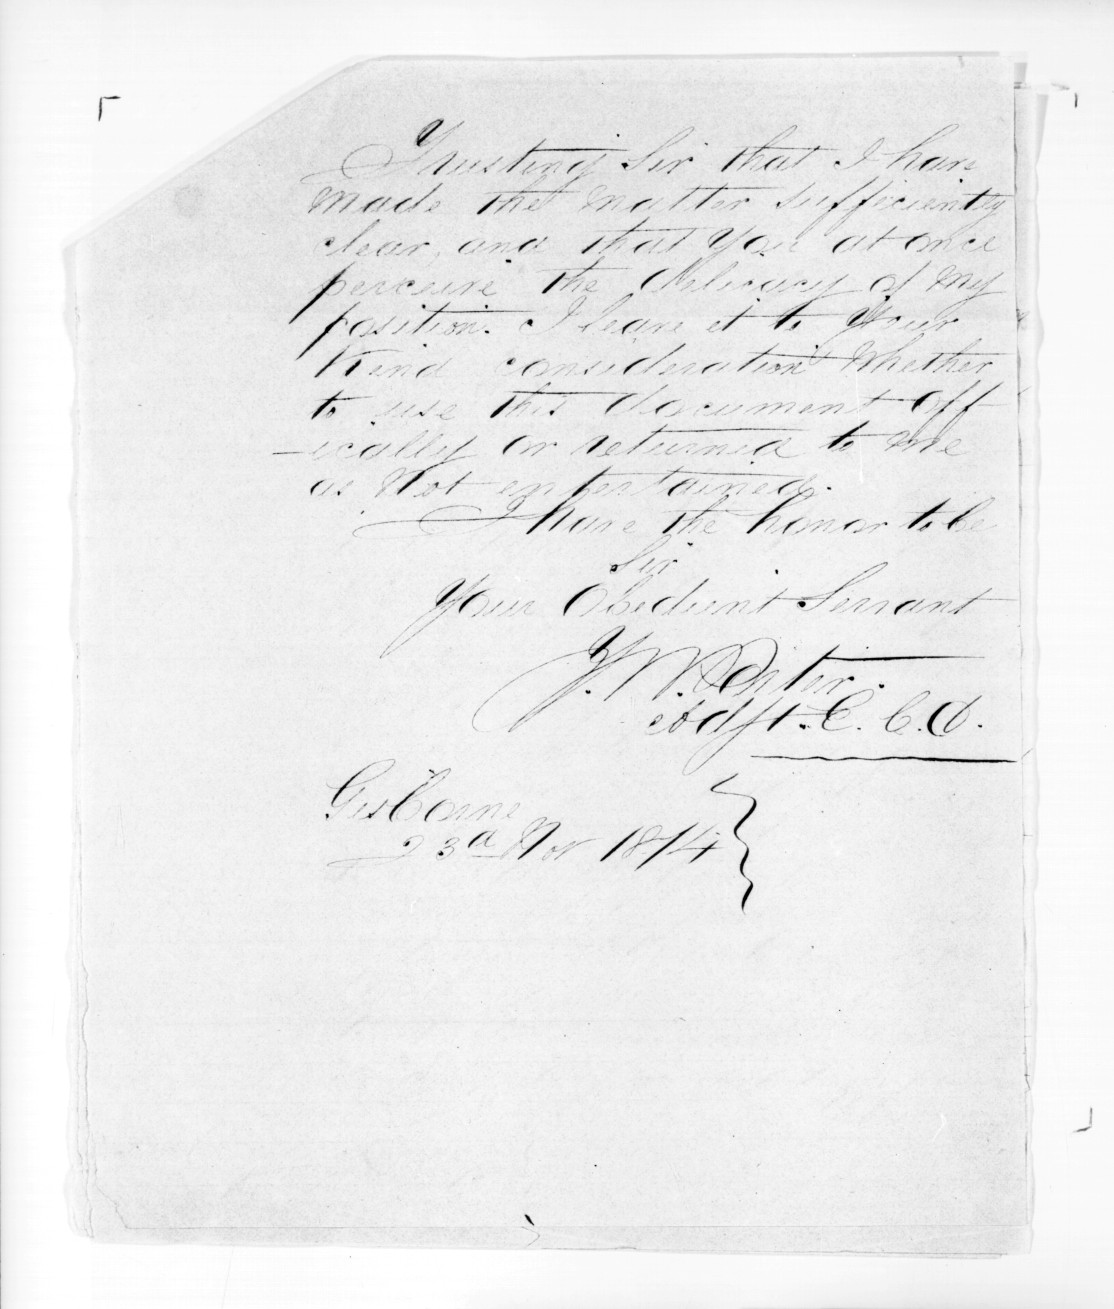 Trusting Sir that I have
made the matter sufficiently
clear, and that you at once
perceive the delicacy of my
position. I leave it to Your
Kind consideration whether
to use this document off
-icially or returned to me
as Not entertained.
I have the honor to be
Sir
Your Obedient Servant
J. W. Porter.
Adjt. E. C. D.
Gisborne
23d Nov 1874